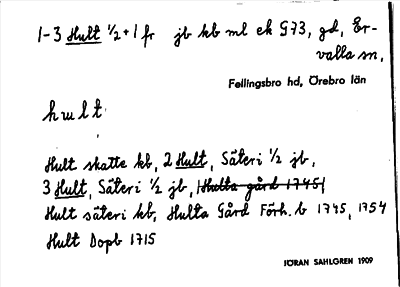 1-3 Hult ½+1 fr jb kb ml ek G73, gd, Er-
valla sn,
Fellingsbro hd, Örebro län
hult
Hult skatte kb, 2 Hult, Säteri ½ jb,
3 Hult, Säteri ½ jb, |Hulta gård 1745|
Hult säteri kb, Hulta Gård Förh.b 1745, 1754
Hult Dopb 1715
JÖRAN SAHLGREN 1909